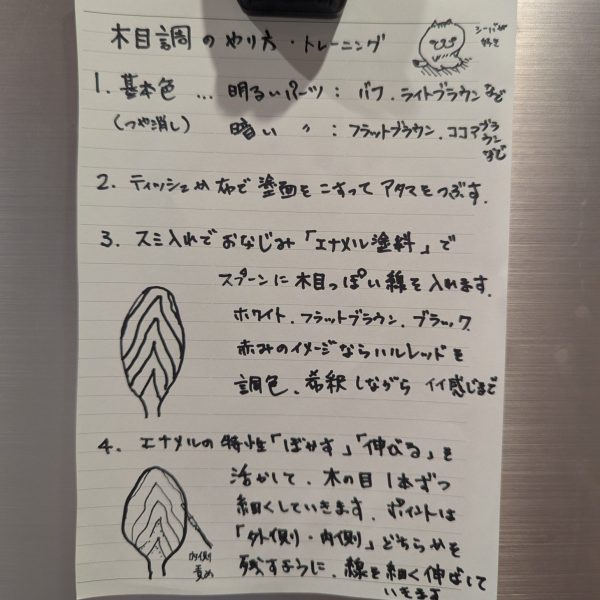 木目調のやり方・トレーニング
1. 基本色 … 明るいパーツ：バフ．ライトブラウンなど
(つや消し) 暗い 〃 ：フラットブラウン．ココアブラウンなど
2. ティッシュや布で塗面をこすってアタマをつぶす.
3. スミ入れでおなじみ「エナメル塗料」で
スプーンに木目っぽい線を入れます.
ホワイト．フラットブラウン．ブラック
赤みのイメージならハルレッドを
調色、希釈しながらイイ感じまで
4. エナメルの特性「ぼかす」「伸びる」を
活かして、木の目1本ずつ
細くしていきます. ポイントは
「外側・内側」どちらかを
残すように、線を細く伸ばして
いきます
内側
責め